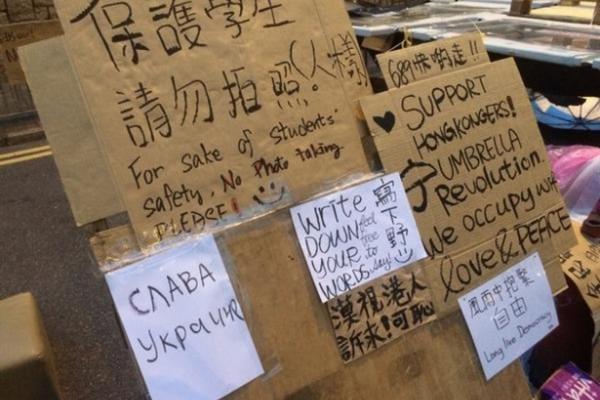 保護學生
請勿拍照。(人樣
For sake of students'
safety, No Photo taking
PLEASE!
689快啲走!!
SUPPORT
HONGKONGERS!
UMBRELLA
Revolution.
We occupy with
love & PEACE
Write
DOWN feel
YOUR free to
WORDS say!
寫下野
漠視港人
訴來!可恥
СЛАВА
УКРАИНІ
風雨中抱緊
自由
Long live Democracy